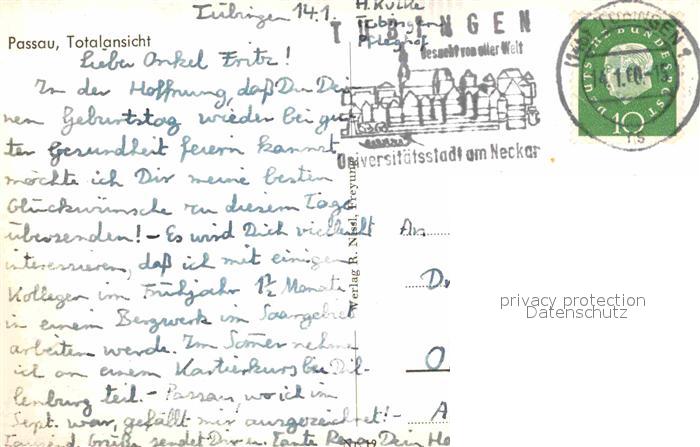 Tübingen 14.1.
H. Kulke
Tübingen
Pfleghof
Passau, Totalansicht
TÜBINGEN
Besucht von aller Welt
Universitätsstadt am Neckar
(14b) TÜBINGEN 1
14.1.60.-15
DEUTSCHE BUNDESPOST
10
Lieber Onkel Fritz!
In der Hoffnung, daß Du Dei-
nen Geburtstag wieder bei gu-
ter Gesundheit feiern kannst,
möchte ich Dir meine besten
Glückwünsche zu diesem Tage
übersenden! - Es wird Dich vielleicht
interessieren, daß ich mit einigen
Kollegen im Frühjahr 1½ Monate
in einem Bergwerk im Saargebiet
arbeiten werde. Im Sommer nehme
ich an einem Kartierkurs bei Dil-
lenburg teil. - Passau, wo ich im
Sept. war, gefällt mir ausgezeichnet! -
Tausend Grüße sendet Dir u. Tante Dein He
Verlag R. Nissl, Freyung
An
D
O
A
privacy protection
Datenschutz